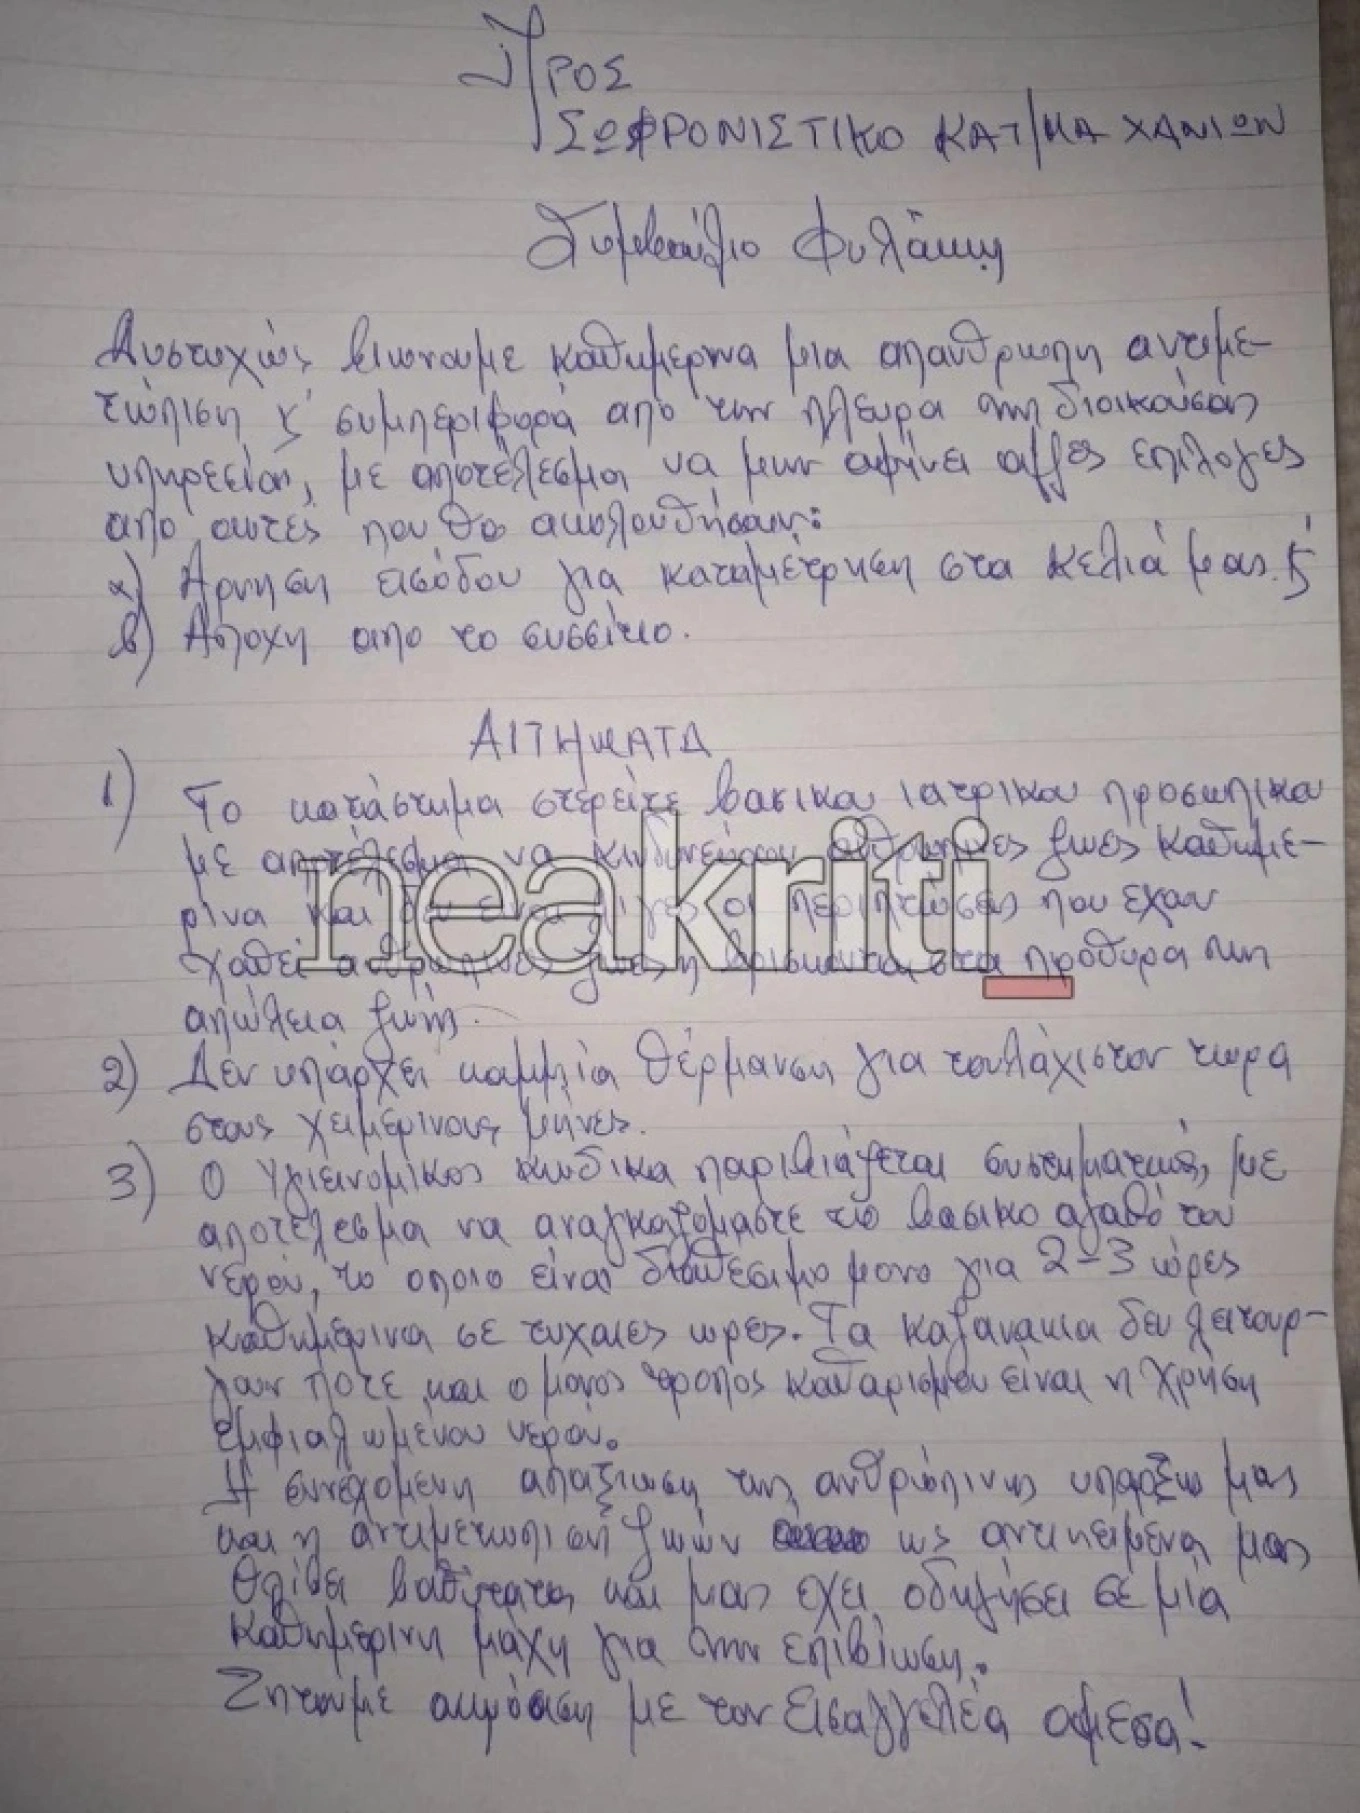 Προς
ΣΩΦΡΟΝΙΣΤΙΚΟ ΚΑΤ/ΜΑ ΧΑΝΙΩΝ
Συμβούλιο Φυλακής
Δυστυχώς βιώνουμε καθημερινα μια απανθρωπη αντιμε-
τώπιση ς' συμπεριφορά από την πλευρα της διοικούσας
υπηρεσίας, με αποτέλεσμα να μην αφήνει αλλες επιλογες
απο αυτές που θα ακολουθήσουν:
α) Αρνηση εισόδου για καταμέτρηση στα κελιά μας. ς'
β) Αποχη απο το συσσίτιο.
ΑΙΤΗΜΑΤΑ
1) Το κατάστημα στερείτε βασικα ιατρικα προσωπικα
με αποτέλεσμα να κινδυνεύουν ανθρωπινες ζωες καθημε-
ρίνα και δεν ειναι λιγες οι περιπτώσεις που εχουν
χαθεί ανθρωπινες ζωες η βρισκονται στα πρόθυρα της
απώλεια ζωής.
2) Δεν υπάρχει καμμία θέρμανση για τουλάχιστον τωρα
στους χειμερινους μήνες.
3) Ο Υγιεινομικος κωδικα παριβιάζεται συστηματικώς, με
αποτέλεσμα να αναγκαζομαστε το βασικο αγαθό του
νερού, το οποιο είναι διαθεσιμο μονο για 2-3 ώρες
καθημερινα σε τυχαιες ωρες. Τα καζανακια δεν λειτουρ-
γουν ποτε και ο μόνος τροπος καθαρισμου είναι η χρήση
εμφιαλωμένου νερου.
Η συνεχομενη απαξιωση της ανθρώπινης υπαρξω μας
και η αντιμετωπιση ζωών ως αντικειμενα μας
θλίβει βαθύτατα και μας εχει οδηγήσει σε μία
καθημερινη μαχη για την επιβίωση.
Ζητουμε ακρόαση με τον Εισαγγελέα αμεσα!
neakriti